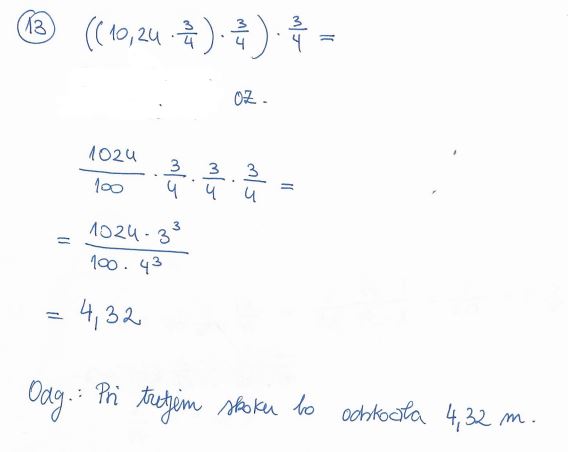 13 ((10,24 · 3/4) · 3/4) · 3/4 =
oz.
1024/100 · 3/4 · 3/4 · 3/4 =
= 1024 · 3³ / 100 · 4³
= 4,32
Odg.: Pri tretjem skoku bo odskočila 4,32 m.